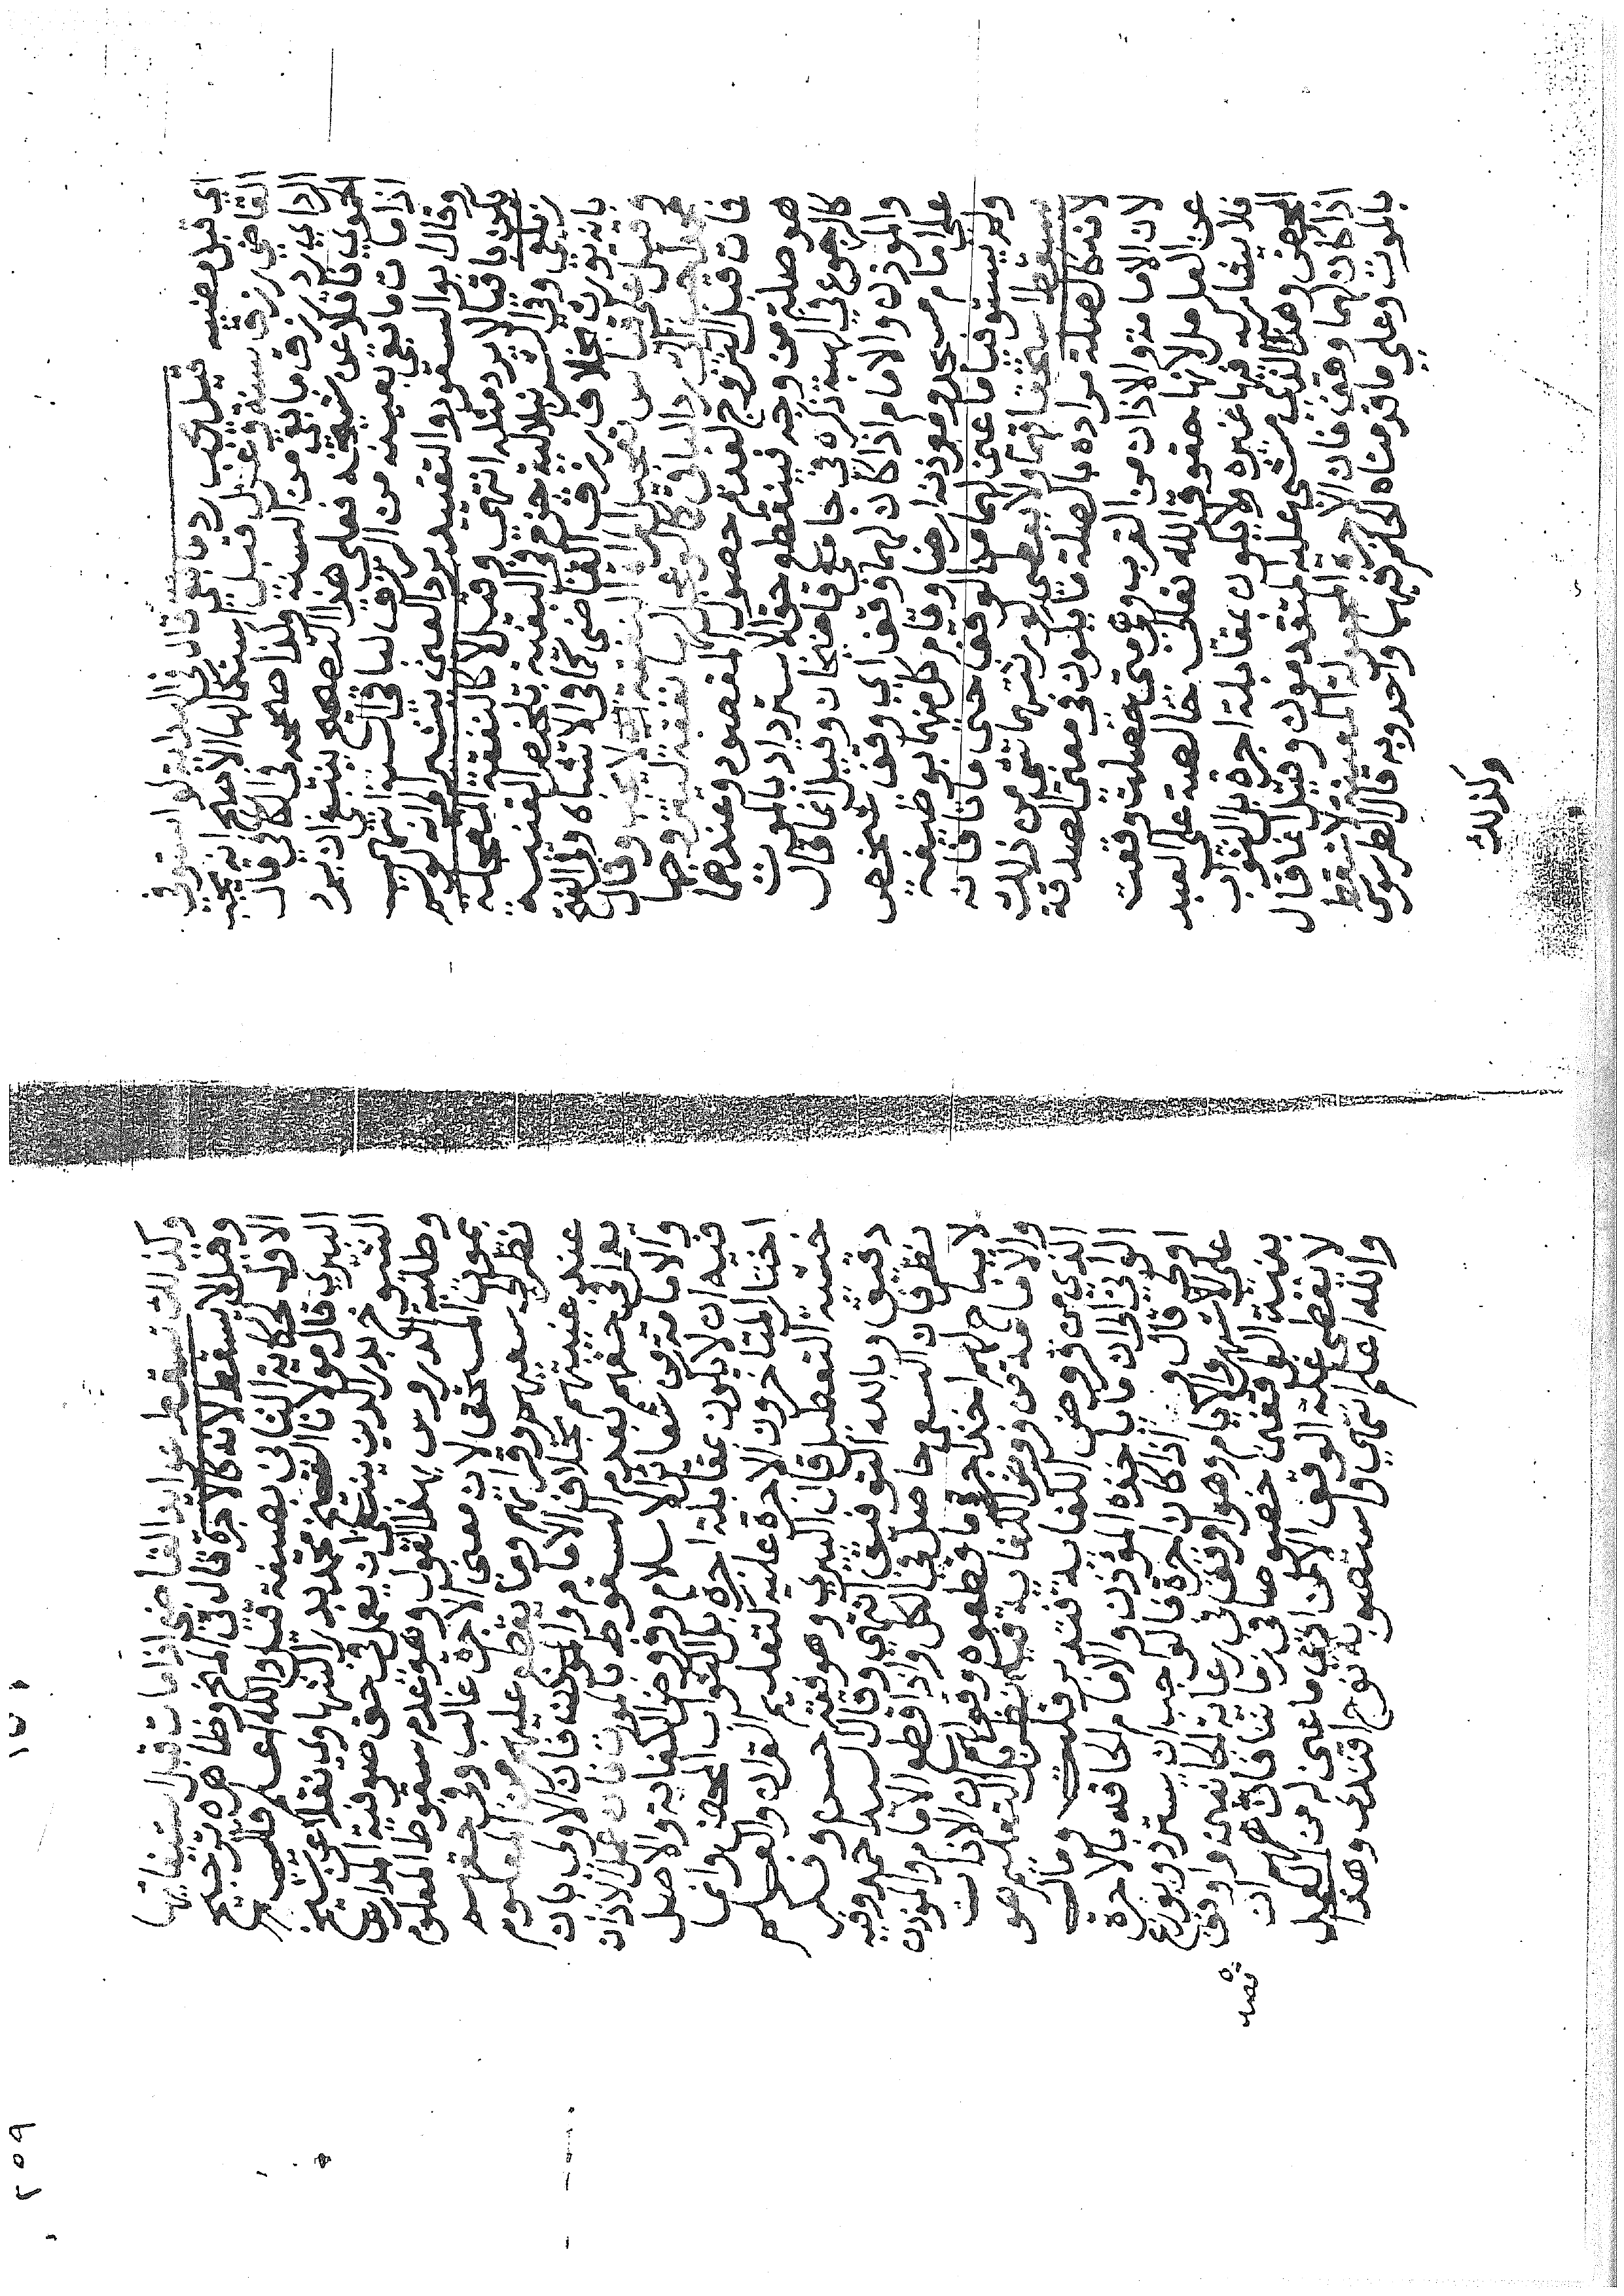 اي قبل مضيه قيل يجب رد ما بقي قال في الهداية لو استوفى
القاضي رزق سنة وعزل قبل استكمالها الاصح انه يجب
الرد اي رد رزق ما بقي من السنة وكذا صححه في الكافي قال
الحموي ناقلا عن شيخه فعلى هذا التصحيح ينبغي ان يرد
اذا مات ما بقي بعينه من الرزق لباقي السنة انتهى
وقال بو السعود والتقييد برد المعنى يشير الى انه لو لم
يكن باقيا لا يرد مثله انتهى وقيل لا كالنفقة المعجلة
زيلعي وفي الشرنبلالية جزم في البغية تلخيص القنية
بانه يورث بخلاف رزق القاضي كما في الاشباه وفي النهر
وقيل على قياس تعجيل المرأة النفقة لا يجب وقال
محمد يجب رد الباقي لها نفقة ليتزوجها
فمات قبل التزوج لعدم حصول المقصود وعندهما
هو صلة من وجه فينقطع حق الاسترداد بالموت
كالرجوع في الهبة ذكره في جامع قاضيخان وقيل انما قال
والمؤذن والامام اذا كان لهما وقف اي وقف شخص
على امام مسجد ومؤذنه ارضا وقام كل منهما بوظيفته
ولم يستوفيا ما عين لهما من الوقف حتى ماتا فانه
يسقط استحقاقهما ولا يعطى لورثتهما شي من ذلك
لانه كالصلة مراده بالصلة ما يكون في معنى الصدقة
لان الامامة والاذان من القرب ومتى حصلت وقعت
عن العامل لانها حقوق الله تعالى خالصة على العبد
فلا يشاركه فيها غيره ولا يكون بمقابلة اجرة بل الثواب
المحض وهذا الذي مشى عليه المتقدمون وقيل انما قال
اذا كان لهما وقف فان الاجرة المعينة لا تسقط
بالموت وعلى ما قدمناه فيها واحد وبه قال الطرسوسي
وكذلك
وكذلك تسقط القاضي اذا مات قبل استيفائها
وقيل لا يسقط لانه كالاجرة قال في المنح وظاهره ترجيح
الاول لحكاية الثاني بصيغة قيل والله اعلم قلت صرح
التبري قال مولانا الشيخ محمد بدر الشهاوي نقلا عن شيخ
الشيوخ بدر الدين ينبغي ان يعمل في حق صوفية المدارس
وطلبة الدروس بهذا القول وهو عدم سقوط المعلوم
بموت المستحق لان معنى الاجرة غالب وفي حقهم
نظرا الى سعيهم وقراتهم وما يقطع عليهم من المعلوم
عند غيبتهم بخلاف الامام والمؤذن فان الاولى بان
يعمل في حقهم بعدم السقوط بالموت فان عمل الاذان
والامامة من شعائر الاسلام وفروض الكفاية والاصل
فيه ان لا يكون بمقابلة اجرة بل الثواب المحض وانما
اخذ المتاخرون الاجرة عليه لتعليم القران والعلم
خشية التعطيل قال التبري وهو فقه حسن وفهم
دقيق وبالله التوفيق انتهى وقال السيد احمد وفيه
نظر فان السعي حاصل في الكل واذا قطعوا الامام والمؤذن
لا يباح لهم اخذ اجرة ما قطعوه وقولهم ان الاذان
والامامة من فروض الكفاية فيه نظر بل التعليم هو
الذي من فروض الكفاية فتدبر قلت ومال
الواني الى ان ما ياخذه المؤذن والامام الحاقه بالاجرة
اولى قال واذا كان اجرة فالواجب ان يسترد ويوزع
على الاشهر والايام وهو اوفق في رعاية الجانبين واوفق
بغنية الواقفين خصوصا في زماننا فان غرضهم ان
لا يفضى غلة الوقف الا لمن ادى ما عين له من العمل
والله اعلم انتهى واستصوبه نوح افندي وهذا
١٥١
٢٥٩